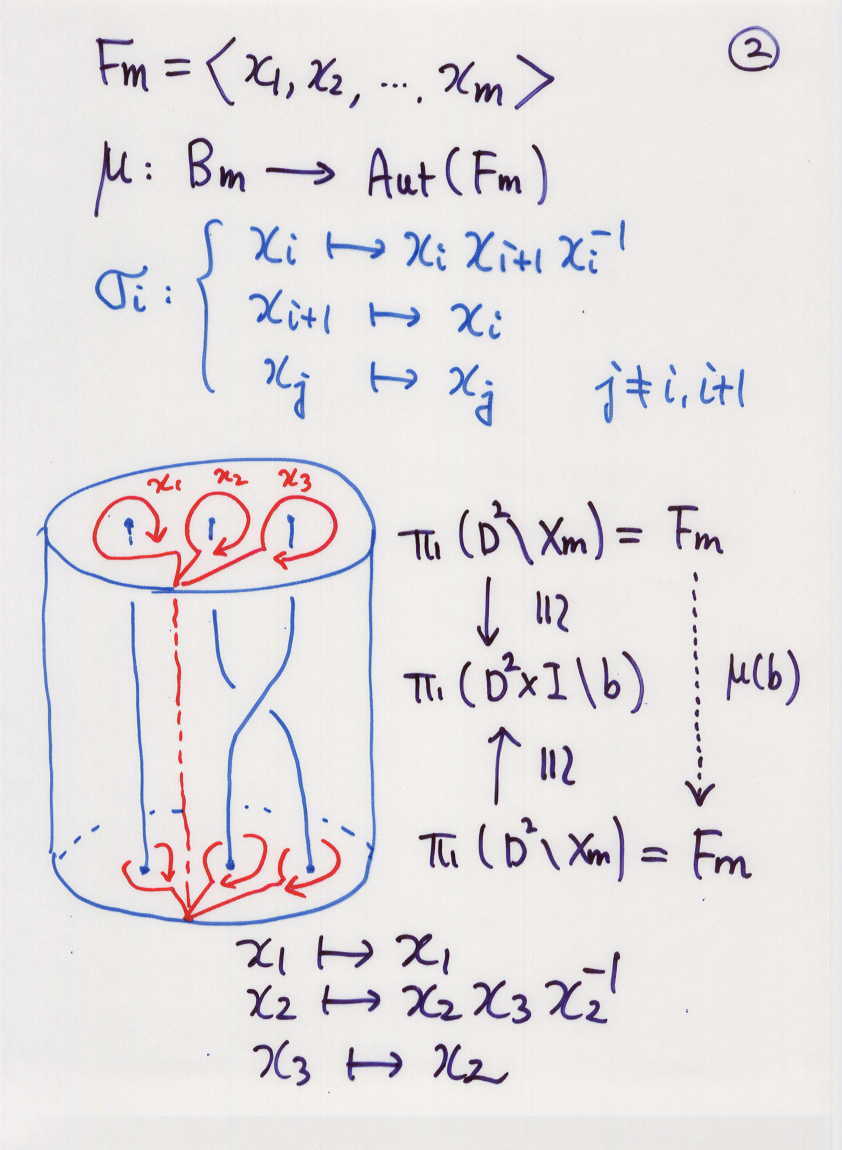 ②
Fm = ⟨x1, x2, ..., xm⟩
μ: Bm ⟶ Aut(Fm)
σi: { xi ↦ xi xi+1 xi⁻¹
xi+1 ↦ xi
xj ↦ xj j ≠ i, i+1
x1 x2 x3
π1 (D²\Xm) = Fm
↓ ≅
π1 (D²×I\b) μ(b)
↑ ≅
π1 (D²\Xm) = Fm
x1 ↦ x1
x2 ↦ x2 x3 x2⁻¹
x3 ↦ x2